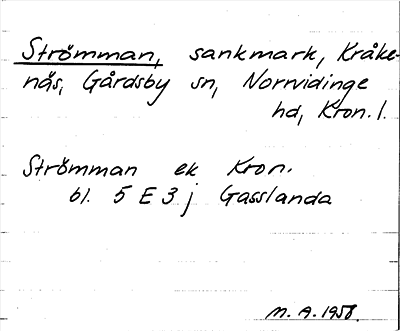 Strömman, sankmark, Kråke-
näs, Gårdsby sn, Norrvidinge
hd, Kron. l.
Strömman ek Kron.
bl. 5 E 3 j Gasslanda
M. A. 1958.